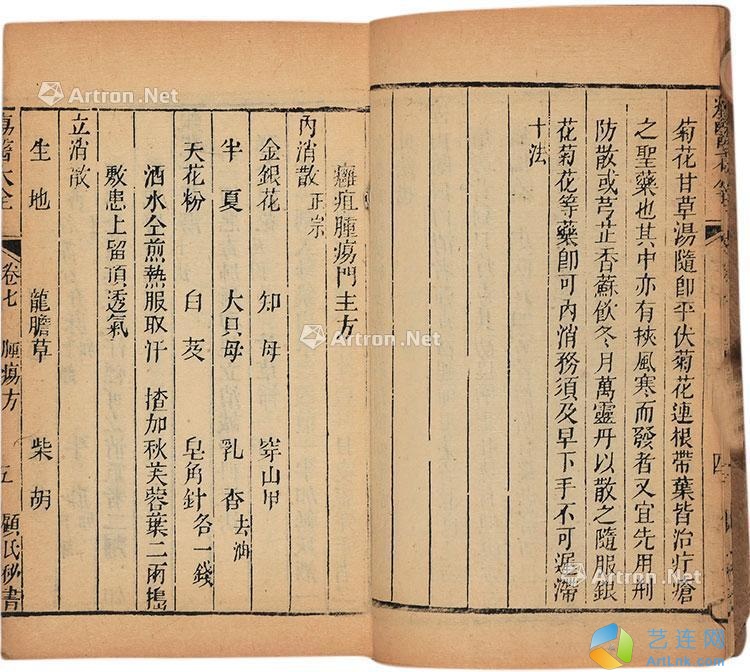 菊花甘草湯隨卽平伏菊花連根帶葉皆治疔瘡
之聖藥也其中亦有挾風寒而發者又宜先用荆
防散或芎芷香蘇飲冬月萬靈丹以散之隨服銀
花菊花等藥卽可內消務須及早下手不可遲滯
十法
四
癰疽腫瘍門主方
內消散 正宗
金銀花 知母 穿山甲
半夏 大貝母 乳香 去油
天花粉 白芨 皂角針 各一錢
酒水仝煎熱服取汗 揸加秋芙蓉葉二兩搗
敷患上留頂透氣
立消散
生地 龍膽草 柴胡
瘍醫大全 卷七 腫瘍方 五 顧氏秘書
Artron.Net
Artron.Net
Artron.Net
Artron.Net
艺连网
ArtLink.com